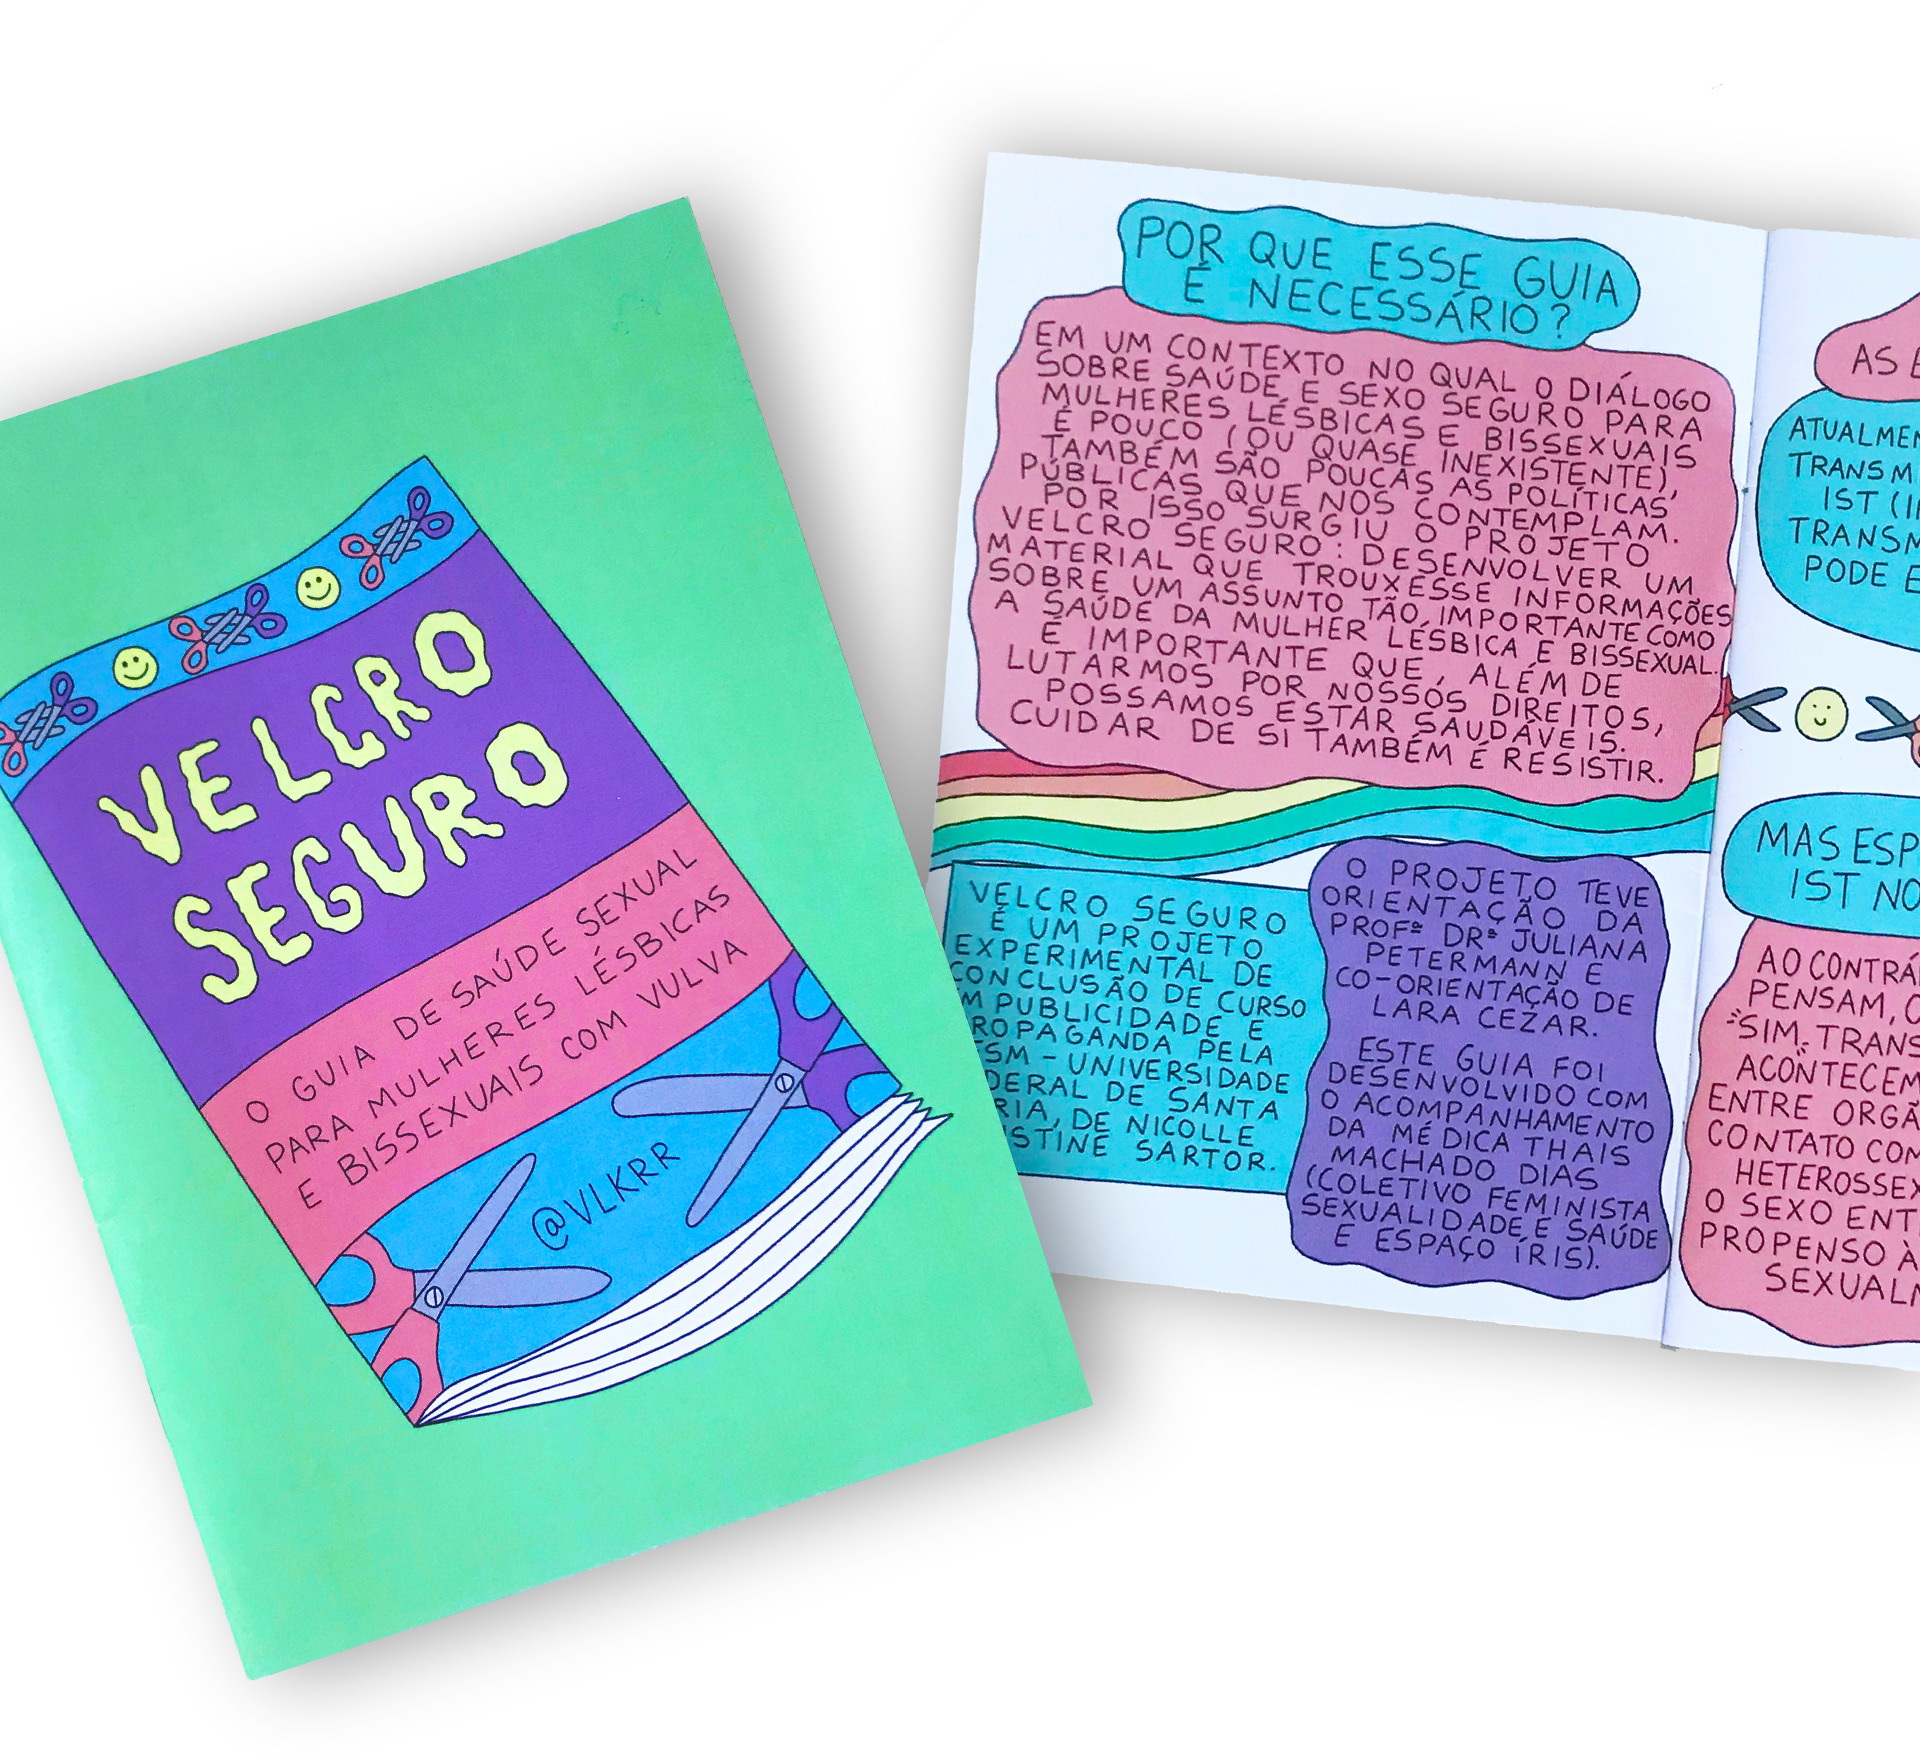 VELCRO
SEGURO
O GUIA DE SAÚDE SEXUAL
PARA MULHERES LÉSBICAS
E BISSEXUAIS COM VULVA
@VLKRR
POR QUE ESSE GUIA
É NECESSÁRIO?
EM UM CONTEXTO NO QUAL O DIÁLOGO
SOBRE SAÚDE E SEXO SEGURO PARA
MULHERES LÉSBICAS E BISSEXUAIS
É POUCO (OU QUASE INEXISTENTE),
TAMBÉM SÃO POUCAS AS POLÍTICAS
PÚBLICAS QUE NOS CONTEMPLAM.
POR ISSO SURGIU O PROJETO
VELCRO SEGURO: DESENVOLVER UM
MATERIAL QUE TROUXESSE INFORMAÇÕES
SOBRE UM ASSUNTO TÃO IMPORTANTE COMO
A SAÚDE DA MULHER LÉSBICA E BISSEXUAL.
É IMPORTANTE QUE, ALÉM DE
LUTARMOS POR NOSSOS DIREITOS,
POSSAMOS ESTAR SAUDÁVEIS.
CUIDAR DE SI TAMBÉM É RESISTIR.
VELCRO SEGURO
É UM PROJETO
EXPERIMENTAL DE
CONCLUSÃO DE CURSO
M PUBLICIDADE E
ROPAGANDA PELA
SM - UNIVERSIDADE
DERAL DE SANTA
RIA, DE NICOLLE
STINE SARTOR.
O PROJETO TEVE
ORIENTAÇÃO DA
PROFª DRª JULIANA
PETERMANN E
CO-ORIENTAÇÃO DE
LARA CEZAR.
ESTE GUIA FOI
DESENVOLVIDO COM
O ACOMPANHAMENTO
DA MÉDICA THAIS
MACHADO DIAS
(COLETIVO FEMINISTA
SEXUALIDADE E SAÚDE
E ESPAÇO ÍRIS).
AS E
ATUALMEN
TRANSM
IST (I
TRANSM
PODE E
MAS ESP
IST NO
AO CONTRÁ
PENSAM, O
"SIM, TRANS
ACONTECEM
ENTRE ORGÃ
CONTATO COM
HETEROSSEX
O SEXO ENT
PROPENSO À
SEXUALM